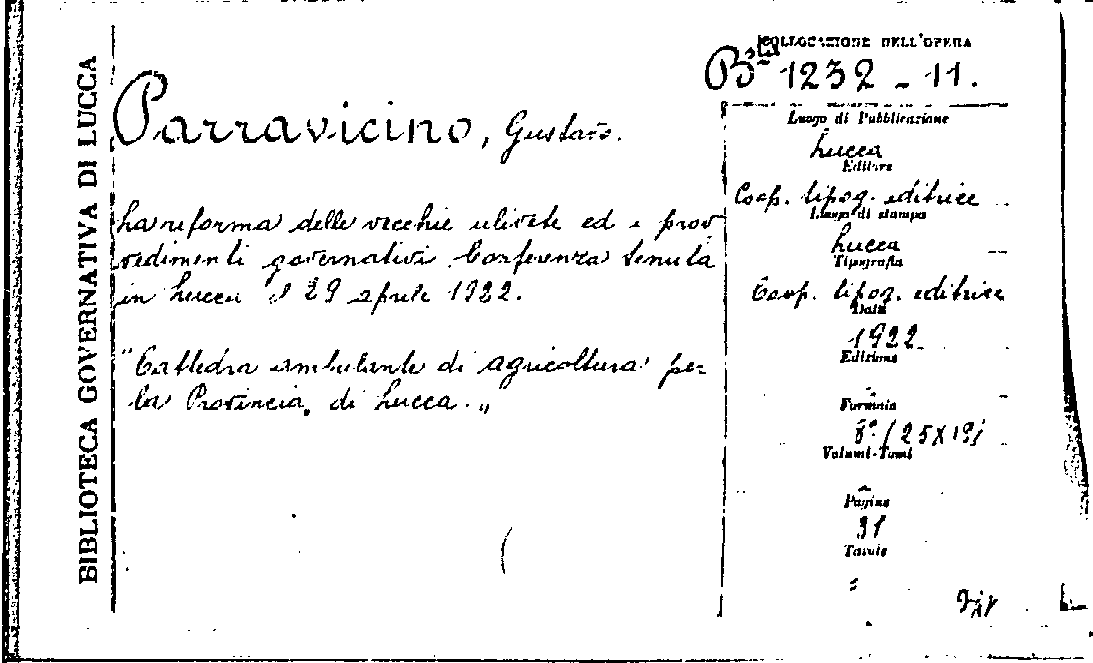 BIBLIOTECA GOVERNATIVA DI LUCCA
COLLOCAZIONE DELL'OPERA
B.ta 1232 - 11.
Parravicino, Gustavo.
La reforma delle vecchie ulivete ed i prov
vedimenti governativi. Conferenza tenuta
in Lucca il 29 aprile 1922.
"Cattedra ambulante di agricoltura per
la Provincia di Lucca."
Luogo di Pubblicazione
Lucca
Editore
Coop. tipog. editrice
Luogo di stampa
Lucca
Tipografia
Coop. tipog. editrice
Data
1922
Edizione
-
Formato
8° (25X19)
Volumi-Tomi
-
Pagine
31
Tavole